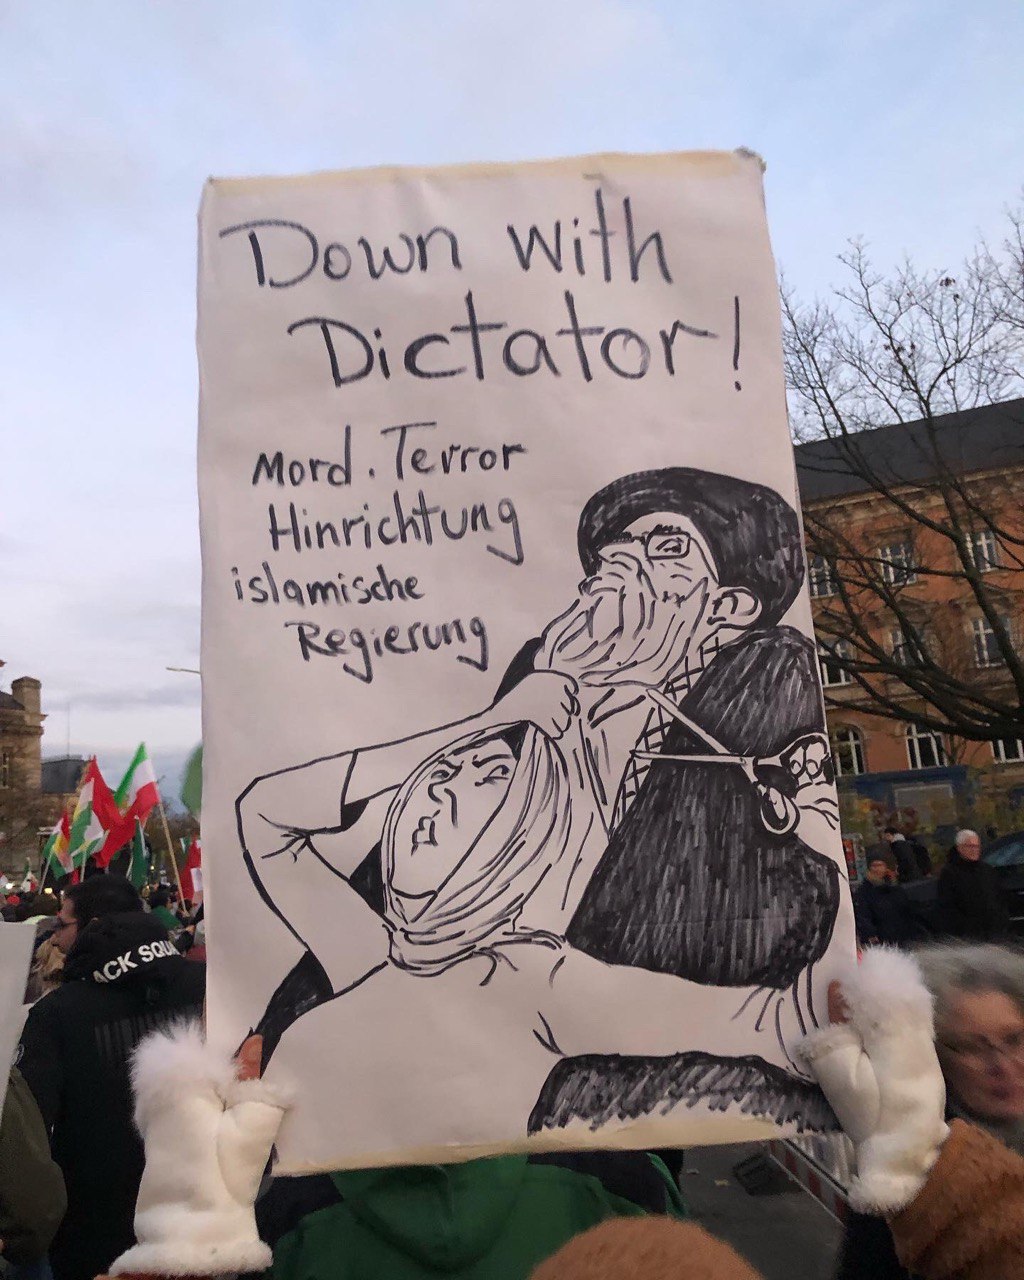 Down with
Dictator!
Mord. Terror
Hinrichtung
islamische
Regierung
ACK SQUA